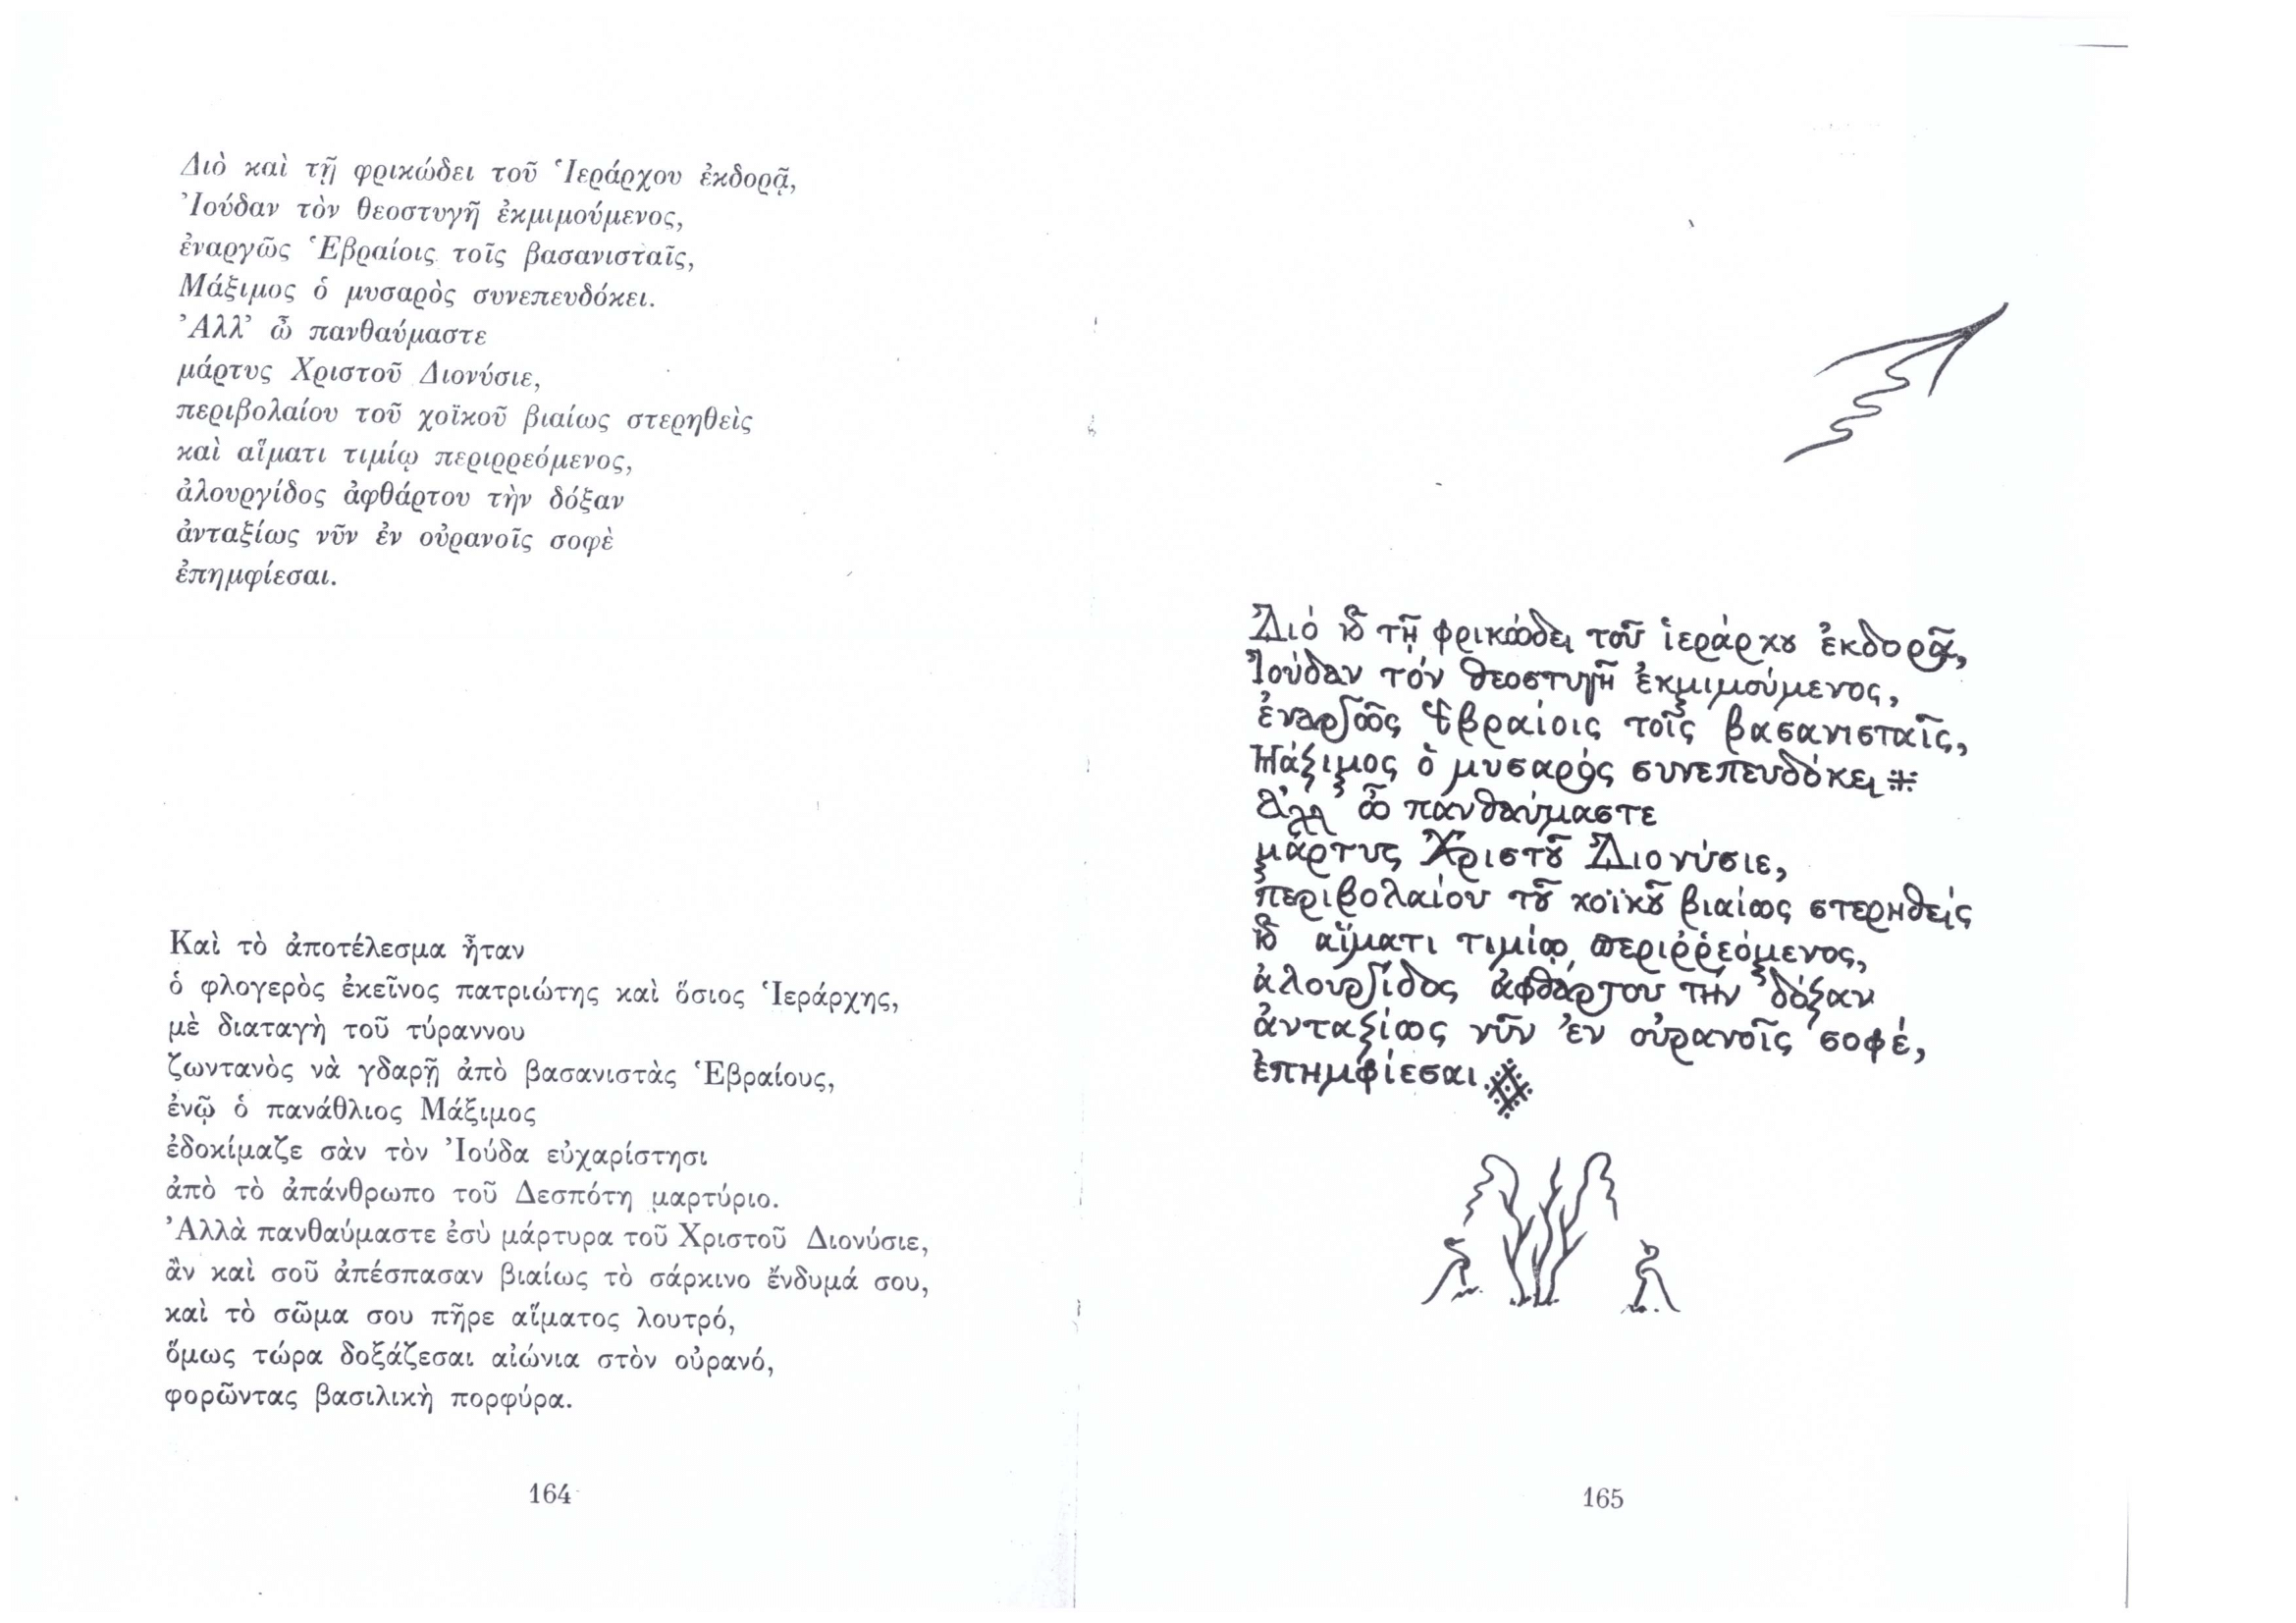 Διὸ καὶ τῇ φρικώδει τοῦ Ἱεράρχου ἐκδορᾷ,
Ἰούδαν τὸν θεοστυγῆ ἐκμιμούμενος,
ἐναργῶς Ἑβραίοις τοῖς βασανισταῖς,
Μάξιμος ὁ μυσαρὸς συνεπευδόκει.
Ἀλλ' ὦ πανθαύμαστε
μάρτυς Χριστοῦ Διονύσιε,
περιβολαίου τοῦ χοϊκοῦ βιαίως στερηθεὶς
καὶ αἵματι τιμίῳ περιρρεόμενος,
ἁλουργίδος ἀφθάρτου τὴν δόξαν
ἀνταξίως νῦν ἐν οὐρανοῖς σοφὲ
ἐπημφίεσαι.
Καὶ τὸ ἀποτέλεσμα ἦταν
ὁ φλογερὸς ἐκεῖνος πατριώτης καὶ ὅσιος Ἱεράρχης,
μὲ διαταγὴ τοῦ τύραννου
ζωντανὸς νὰ γδαρῇ ἀπὸ βασανιστὰς Ἑβραίους,
ἐνῷ ὁ πανάθλιος Μάξιμος
ἐδοκίμαζε σὰν τὸν Ἰούδα εὐχαρίστησι
ἀπὸ τὸ ἀπάνθρωπο τοῦ Δεσπότη μαρτύριο.
Ἀλλὰ πανθαύμαστε ἐσὺ μάρτυρα τοῦ Χριστοῦ Διονύσιε,
ἂν καὶ σοῦ ἀπέσπασαν βιαίως τὸ σάρκινο ἔνδυμά σου,
καὶ τὸ σῶμα σου πῆρε αἵματος λουτρό,
ὅμως τώρα δοξάζεσαι αἰώνια στὸν οὐρανό,
φορῶντας βασιλικὴ πορφύρα.
164
Διό ϗ τῇ φρικώδει τοῦ ἱεράρχου ἐκδορᾷ,
Ἰούδαν τόν θεοστυγῆ ἐκμιμούμενος,
ἐναργῶς Ἑβραίοις τοῖς βασανισταῖς,
Μάξιμος ὁ μυσαρός συνεπευδόκει
Ἀλλ' ὦ πανθαύμαστε
μάρτυς Χριστοῦ Διονύσιε,
περιβολαίου τοῦ χοϊκοῦ βιαίως στερηθείς
ϗ αἵματι τιμίῳ περιῤῥεόμενος,
ἁλουργίδος ἀφθάρτου τήν δόξαν
ἀνταξίως νῦν ἐν οὐρανοῖς σοφέ,
ἐπημφίεσαι
165